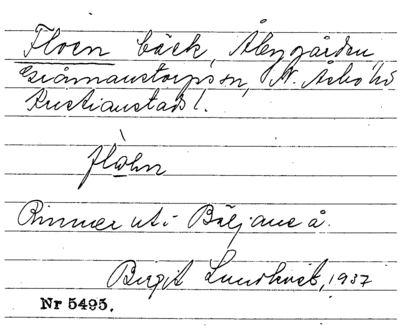 Floen bäck, Åbygården
Gråmanstorps sn, N. Åsbo hd
Kristianstads l.
flòən
Rinner ut i Bäljane å.
Birgit Lundkvist, 1937
Nr 5495.